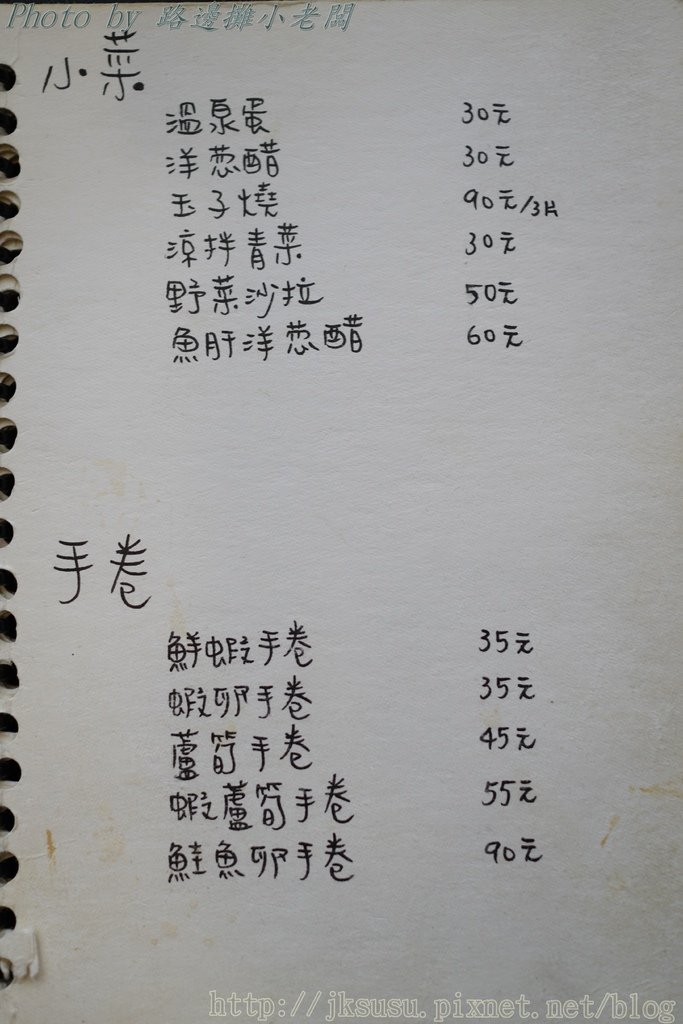 Photo by 路邊攤小老闆
小菜
溫泉蛋 30元
洋蔥醋 30元
玉子燒 90元/3片
涼拌青菜 30元
野菜沙拉 50元
魚肝洋蔥醋 60元
手卷
鮮蝦手卷 35元
蝦卵手卷 35元
蘆筍手卷 45元
蝦蘆筍手卷 55元
鮭魚卵手卷 90元
http://jksusu.pixnet.net/blog